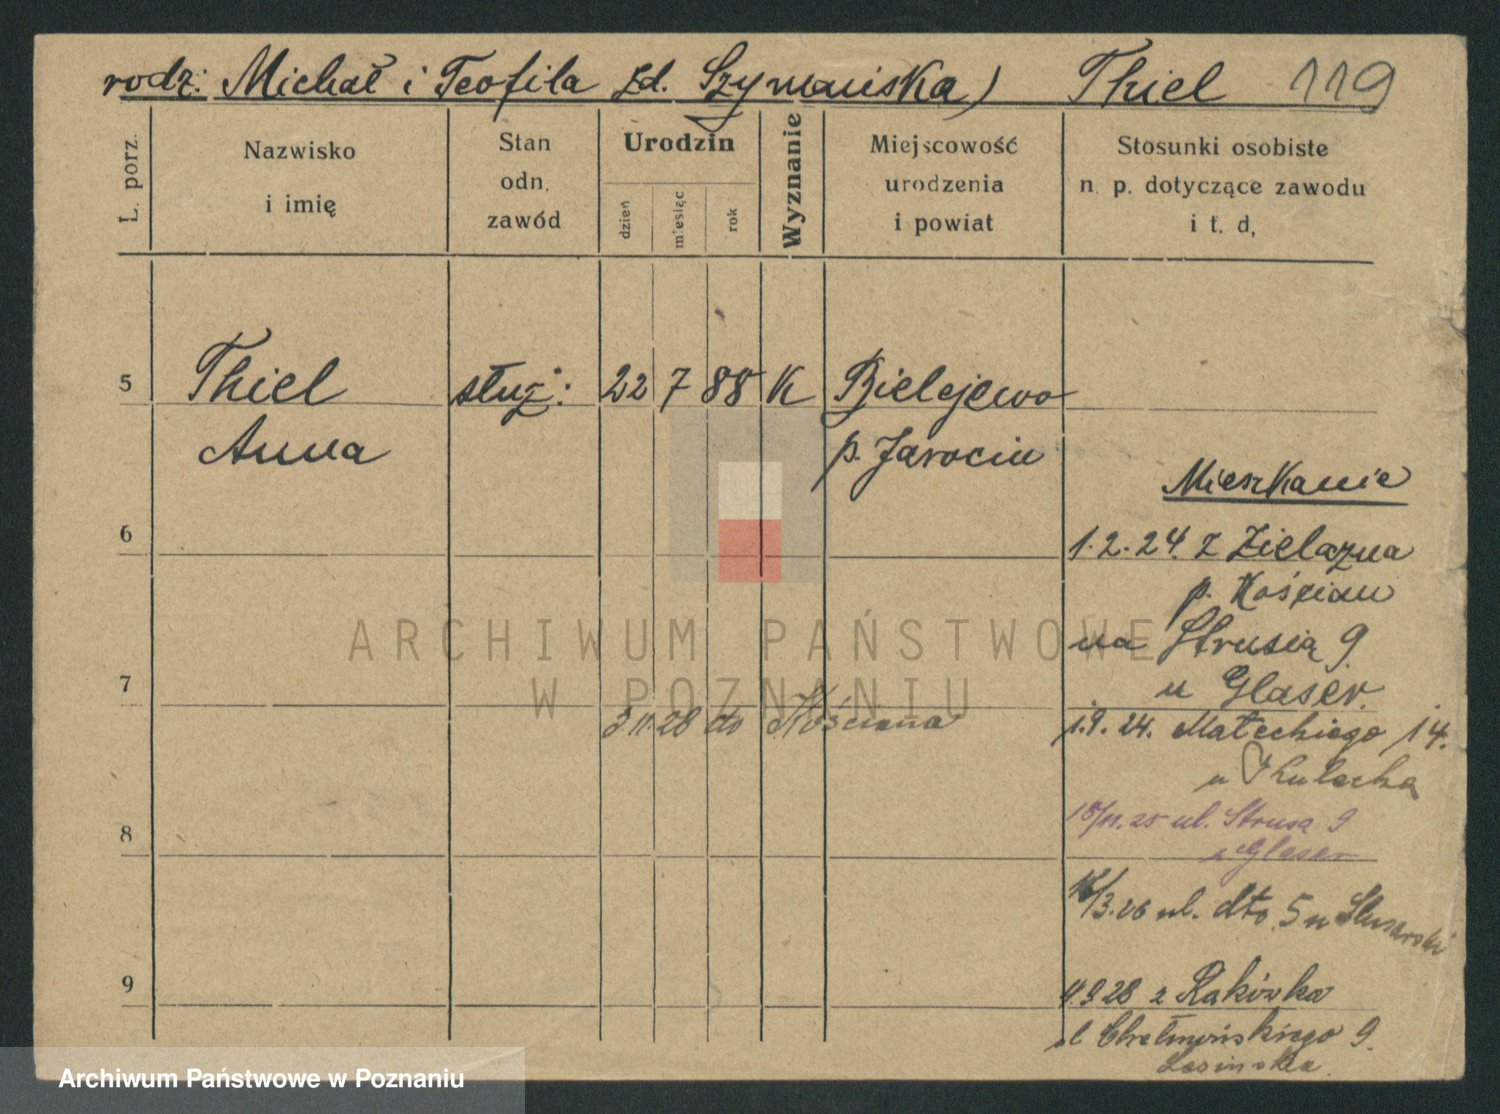 rodz: Michał i Teofila zd. Szymańska) Thiel 119
L. porz.
Nazwisko
i imię
Stan
odn.
zawód
Urodzin
dzień
miesiąc
rok
Wyznanie
Miejscowość
urodzenia
i powiat
Stosunki osobiste
n. p. dotyczące zawodu
i t. d,
5 Thiel służ: 22 7 88 K Bielejewo
Anna p. Jarocin
Mieszkanie
6
1.2.24. z Zielazna
p. Kościan
na Strusią 9
u Glaser.
ARCHIWUM PAŃSTWOWE
W POZNANIU
7
3 11 28 do Kościana
1.9.24. Małeckiego 14.
u
8
18/11.25 ul. Strusa 9
u Glaser
16/3.26 ul. dto. 5 u Slusarski
9
4.9.28 z Rakówka
ul Chełmońskiego 9.
Lasinska.
Archiwum Państwowe w Poznaniu